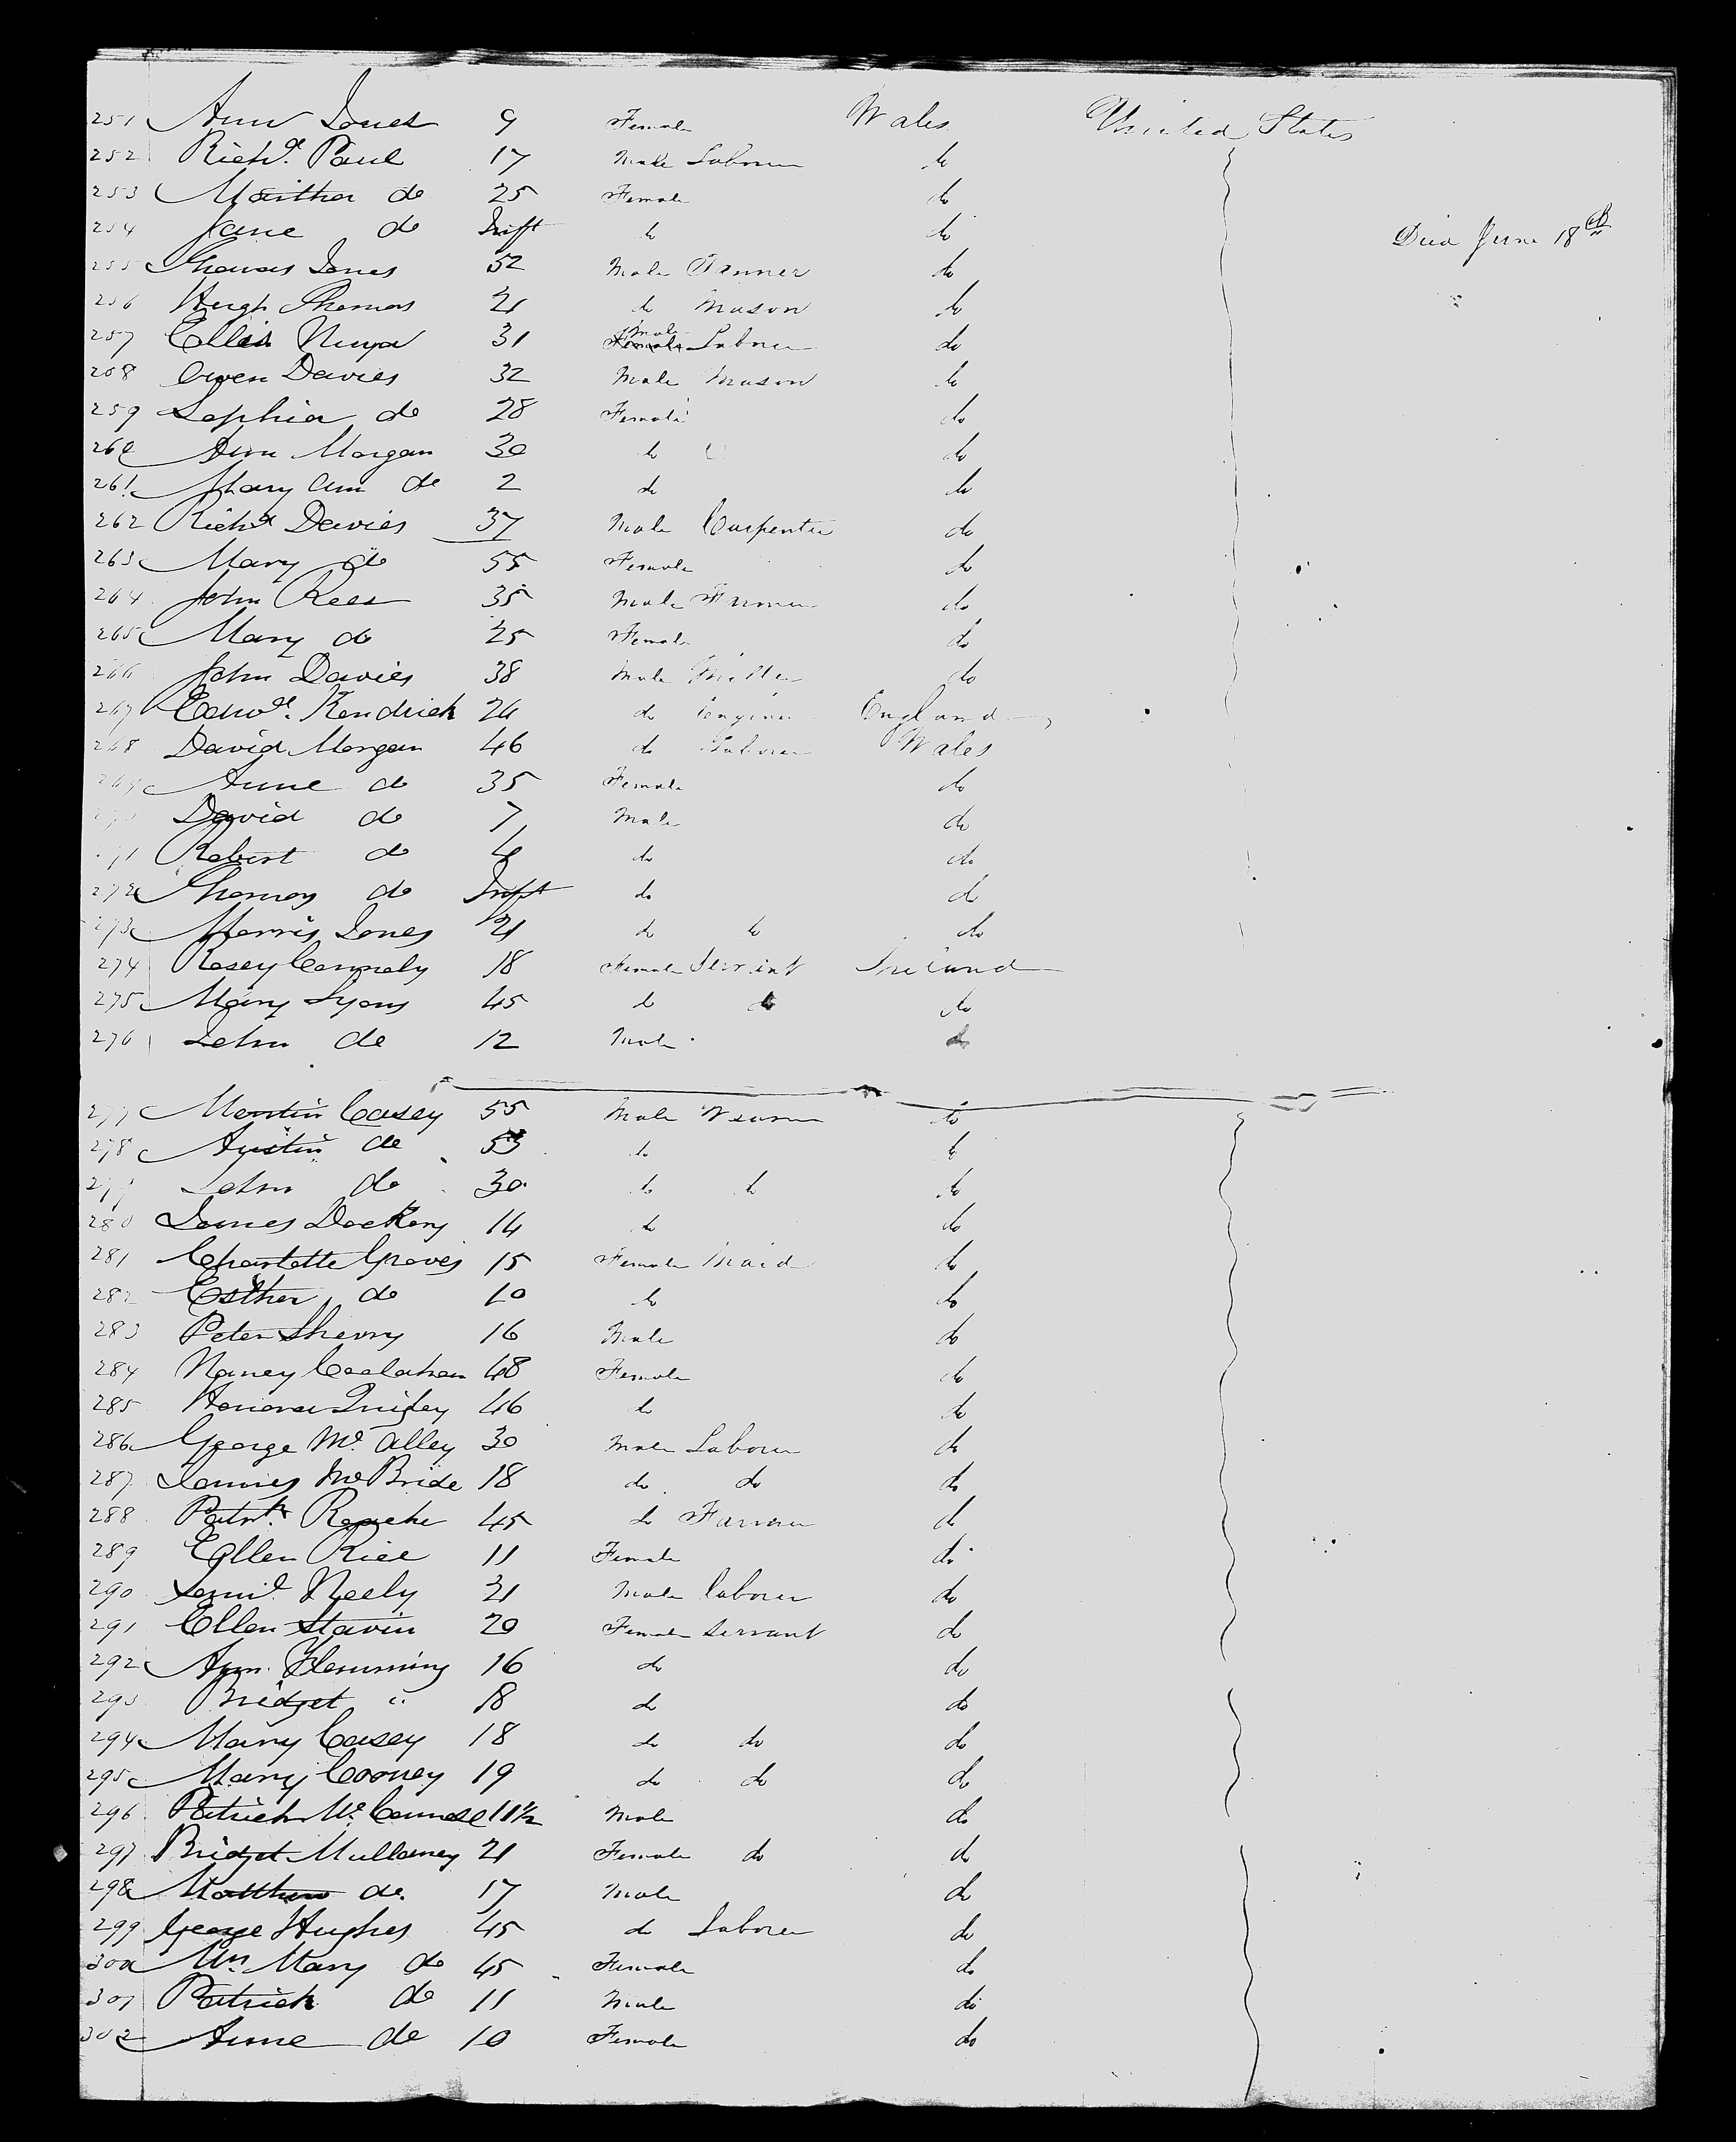 251 Ann Jones 9 Female Wales United States
252 Richd. Paul 17 Male Laborer do
253 Martha do 25 Female do
254 Jane do Inft do do Died June 18th
255 Thomas Jones 52 Male Farmer do
256 Hugh Thomas 21 do Mason do
257 Ellis 31 Male Laborer do
258 Owen Davies 32 Male Mason do
259 Sophia do 28 Female do
260 Ann Morgan 30 do do
261 Mary Ann do 2 do do
262 Richd Davies 37 Male Carpenter do
263 Mary do 55 Female do
264 John Rees 35 Male Farmer do
265 Mary do 25 Female do
266 John Davies 38 Male Miller do
267 Edwd. Kendrick 24 do England
268 David Morgan 46 do Laborer Wales
269 Anne do 35 Female do
270 David do 7 Male do
271 Robert do 4 do do
272 Thomas do Inft do do
273 Morris Jones 21 do do do
274 Rosey Connely 18 Female Servant Ireland
275 Mary Lyons 45 do do do
276 John do 12 Male do
277 Martin Casey 55 Male Weaver do
278 Austin do 53 do do
279 John do 30 do do do
280 James Dockery 14 do do
281 Charlotte Groves 15 Female Maid do
282 Esther do 10 do do
283 Peter Sherry 16 Male do
284 Nancy Coolahan 48 Female do
285 Honora 46 do do
286 George Mc. Alley 30 Male Laborer do
287 James McBride 18 do do do
288 Patrk. Roache 45 do Farmer do
289 Ellen Rice 11 Female do
290 Saml. Neely 21 Male laborer do
291 Ellen Slavin 20 Female servant do
292 Ann Flemming 16 do do
293 Bridget " 18 do do
294 Mary Casey 18 do do do
295 Mary Cooney 19 do do do
296 Patrick Mc. 11½ Male do
297 Bridget Mullaney 21 Female do do
298 Matthew do. 17 Male do
299 George Hughes 45 do Laborer do
300 Mrs Mary do 45 Female do
301 Patrick do 11 Male do
302 Anne do 10 Female do